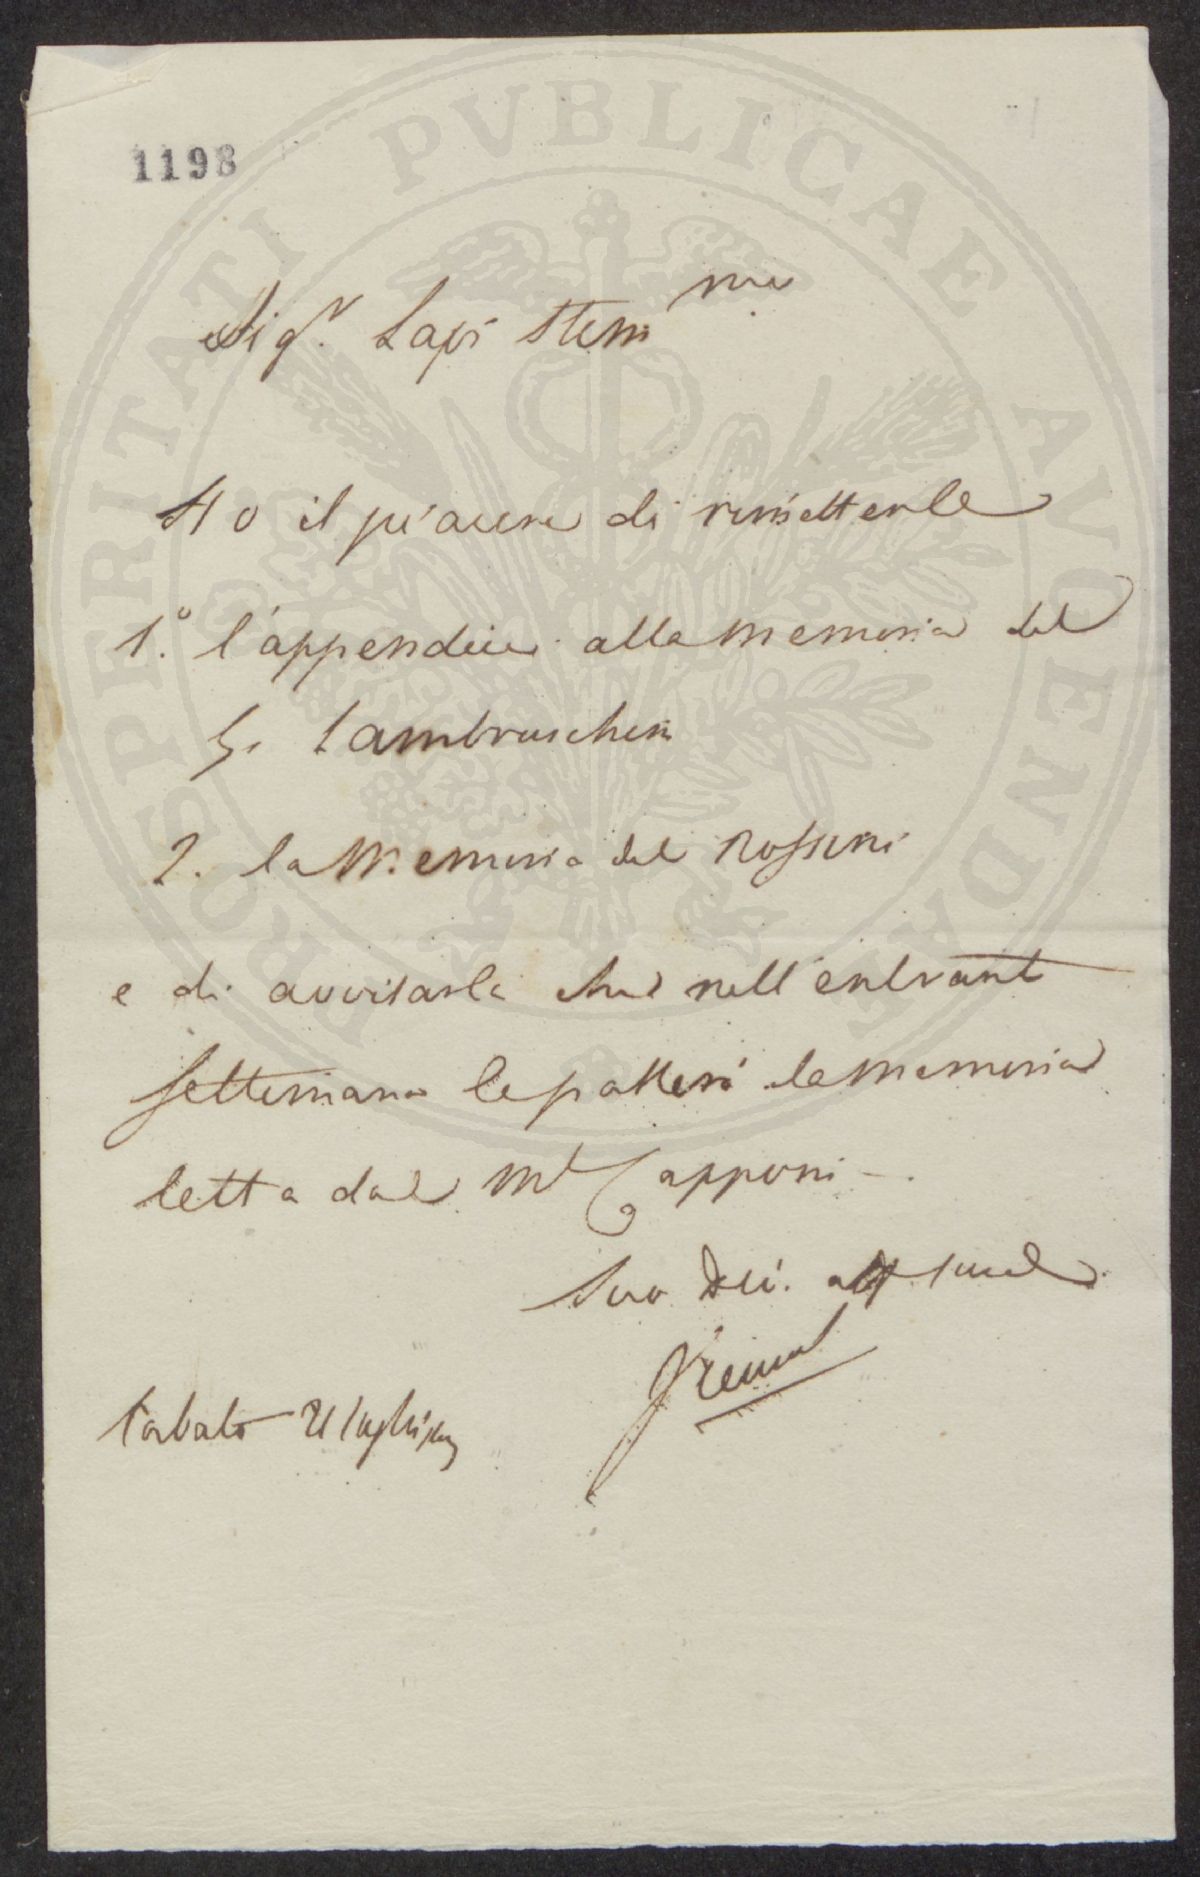 PROSPERITATI PVBLICAE AVGENDAE
1198
Sig.r Lapi Stem.mo
Ho il piacere di rimetterle
1.° l'appendice alla memoria del
S. Lambruschini
2. la Memoria del Rossini
e di avvisarla che nell'entrante
settimana le passerò la memoria
letta dal M.e Capponi -.
Suo
Sabato 21 luglio